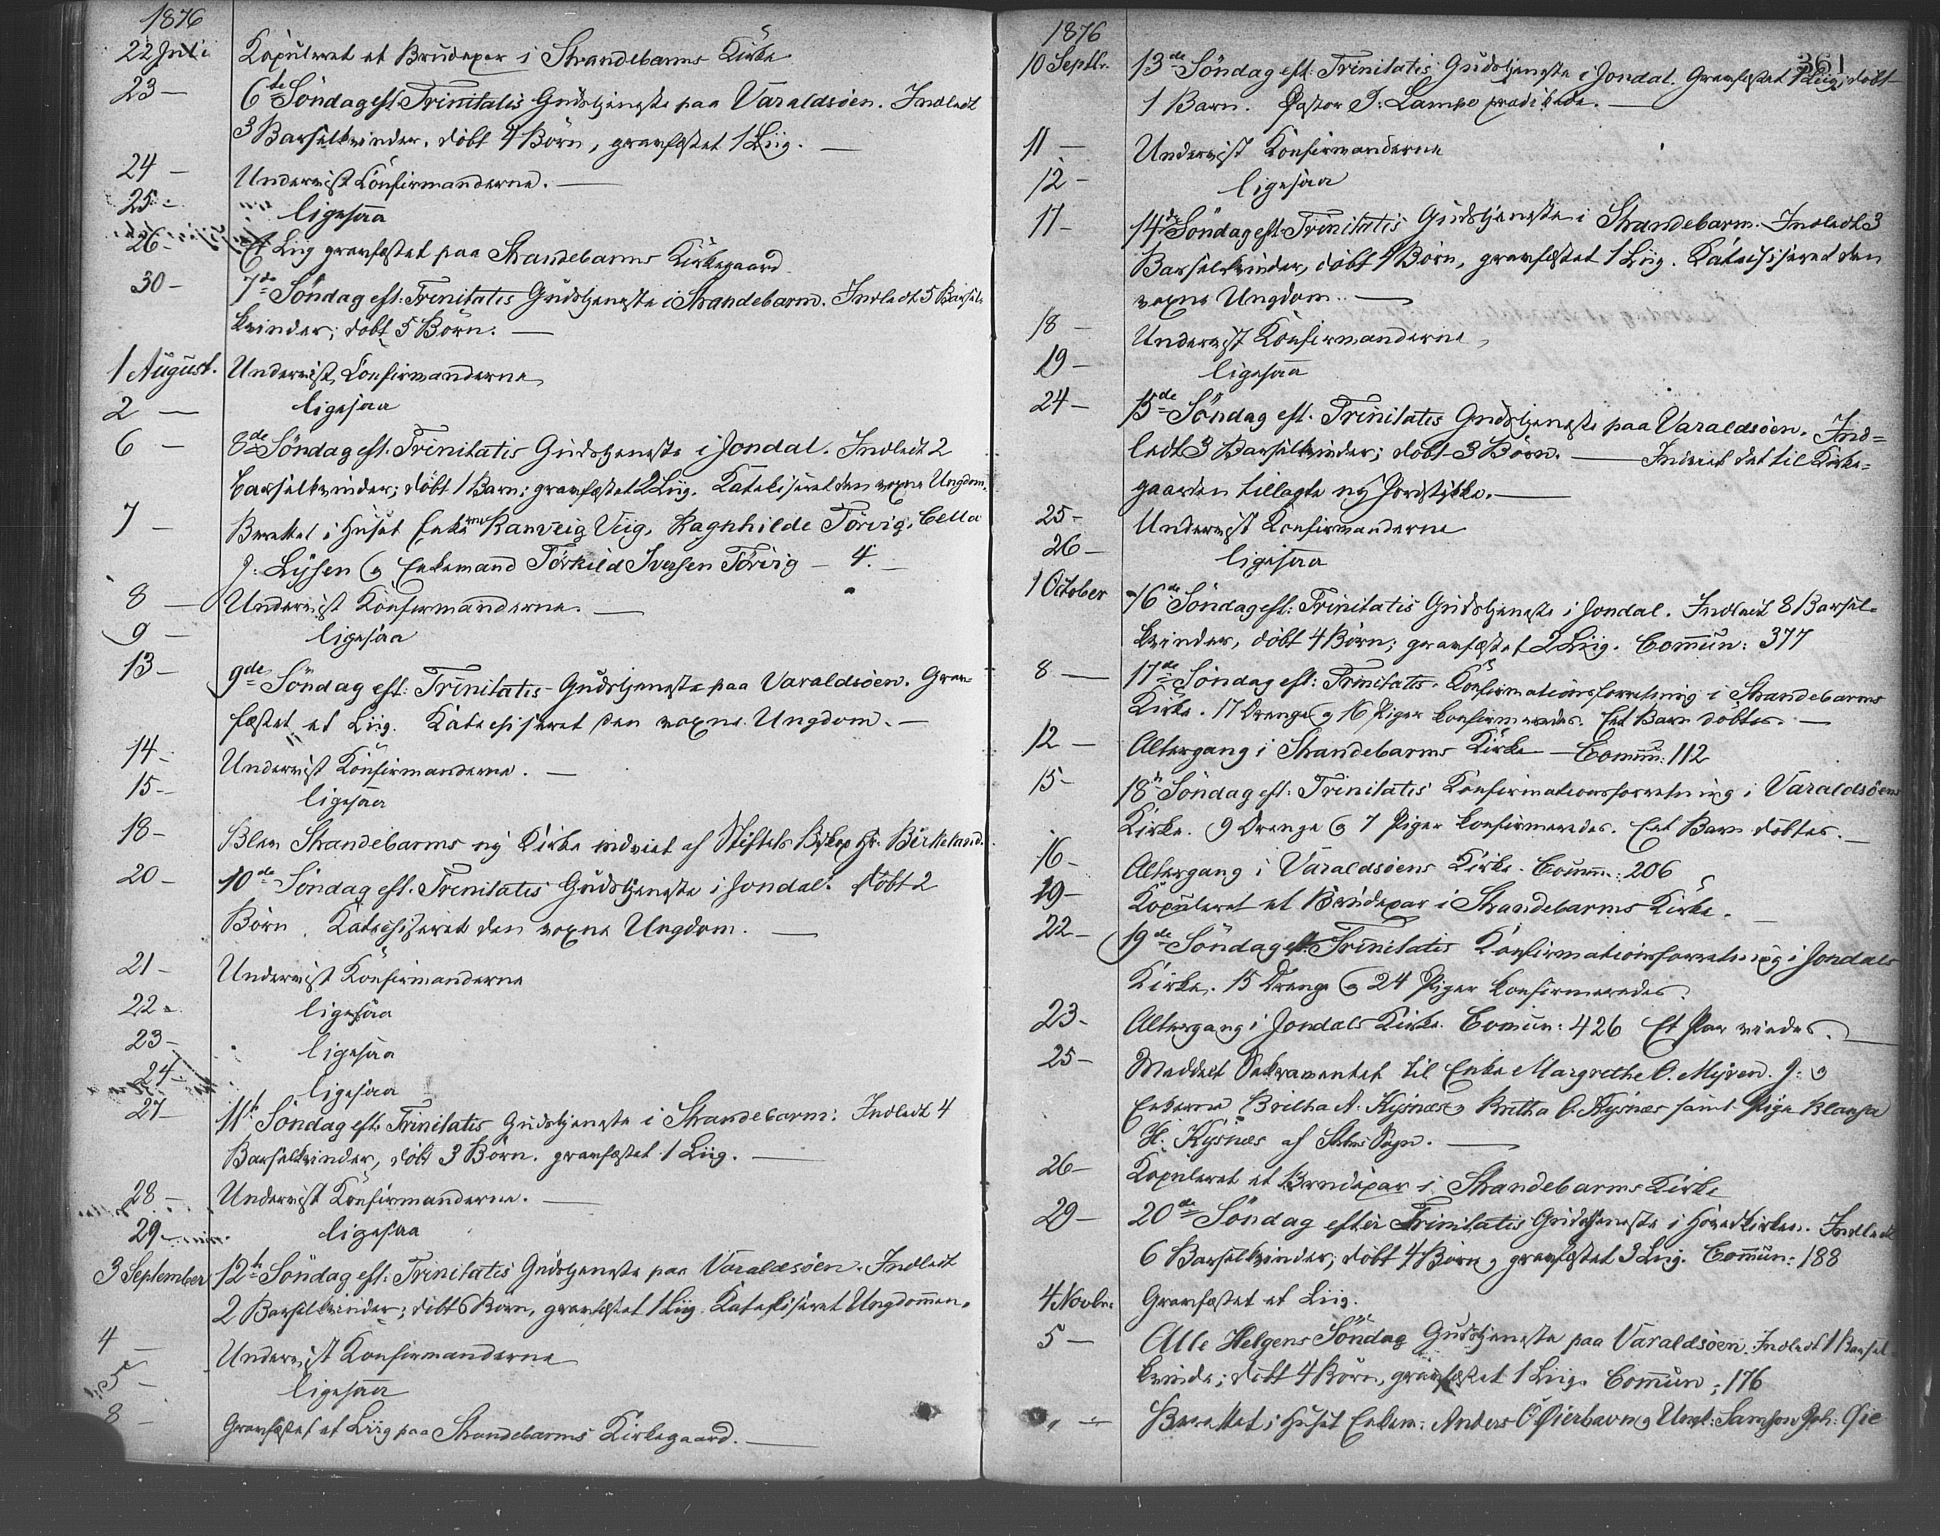 1876
22 Juli Kopuleret et Brudepar i Strandebarms Kirke
23 — 6te Söndag eft. Trinitatis Gudstjeneste paa Varaldsöen. Indledt
3 Barselkvinder, döbt 4 Börn, gravfæstet 1 Liig. —
24 — Undervist Konfirmanderne. —
25 - ligesaa
26 - Et Liig gravfæstet paa Strandebarms Kirkegaard
30 - 7de Söndag eft: Trinitatis Gudstjeneste i Strandebarm. Indledt 5 Barsel-
kvinder; döbt 5 Börn. —
1 August. Undervist Konfirmanderne
2 — ligesaa
6 — 8de Söndag eft. Trinitatis Gudstjeneste i Jondal. Indledt 2
Barselkvinder; döbt 1 Barn; gravfæstet 2 Liig. Katekiseret den voxne Ungdom.
7 — Berettet i Huset Enkerne Ranveig Vig, Ragnhilde Törvig, Cella
J: Lysen og Enkemand Törkild Iversen Törvig — 4. —
8 — Undervist Konfirmanderne. —
9 — ligesaa
13 — 9de Söndag eft: Trinitatis Gudstjeneste paa Varaldsöen. Grav-
fæstet et Liig. Katechiseret den voxne Ungdom. —
14 - Undervist Konfirmanderne. —
15 - ligesaa
18 - Blev Strandebarms ny Kirke indviet af Stiftets Biskop Hr. Birkeland.
20 - 10de Söndag eft. Trinitatis Gudstjeneste i Jondal. Döbt 2
Börn. Katechiseret den voxne Ungdom. —
21 - Undervist Konfirmanderne
22 - ligesaa
23 - ligesaa
24 - ligesaa
27 - 11te Söndag eft. Trinitatis Gudstjeneste i Strandebarm: Indledt 4
Barselkvinder, döbt 3 Börn. gravfæstet 1 Liig. —
28 - Undervist Konfirmanderne. —
29 - ligesaa
3 September 12te Söndag eft: Trinitatis Gudstjeneste paa Varaldsöen. Indledt
2 Barselkvinder; döbt 6 Börn, gravfæstet 1 Liig. Katekiseret Ungdommen.
4 — Undervist Konfirmanderne
5 - ligesaa
8 - Gravfæstet et Liig paa Strandebarms Kirkegaard. —
1876
361
10 Septbr. 13de Söndag eft: Trinitatis Gudstjeneste i Jondal. Gravfæstet 1 Liig, döbt
1 Barn. Pastor J: Lampe prædikede. —
11 — Undervist Konfirmanderne
12 - ligesaa
17 - 14de Söndag eft: Trinitatis Gudstjeneste i Strandebarm. Indledt 3
Barselkvinder, döbt 4 Börn, gravfæstet 1 Liig. Katechiseret den
voxne Ungdom. —
18 - Undervist Konfirmanderne
19 - ligesaa
24 - 15de Söndag eft. Trinitatis Gudstjeneste paa Varaldsöen. Ind=
ledt 3 Barselkvinder; döbt 3 Börn. — Indviet det til Kirke=
gaarden tillagte ny Jordstykke. —
25 - Undervist Konfirmanderne
26 - ligesaa
1 October 16de Söndag eft: Trinitatis Gudstjeneste i Jondal. Indledt 8 Barsel-
kvinder, döbt 4 Börn; gravfæstet 2 Liig. Commun: 377
8 — 17de Söndag eft: Trinitatis. Konfirmationsforretning i Strandebarms
Kirke. 17 Drenge og 16 Piger konfirmeredes. Eet Barn döbtes. —
12 — Altergang i Strandebarms Kirke — Commun: 112
15 - 18de Söndag eft: Trinitatis Konfirmationsforretning i Varaldsöens
Kirke. 9 Drenge og 7 Piger konfirmeredes. Eet Barn döbtes. —
16 - Altergang i Varaldsöens Kirke. Commun: 206
19 - Kopuleret et Brudepar i Strandebarms Kirke. —
22 - 19de Söndag eft Trinitatis Konfirmationsforretning i Jondals
Kirke. 15 Drenge og 24 Piger konfirmeredes.
23 - Altergang i Jondals Kirke. Commun: 426 Et Par viedes. —
25 - Meddelt Sakramentet til Enke Margrethe O. Myren. J: og
Enkerne Britha A. Kysnæs og Britha O. Kysnæs samt Pige
H. Kysnæs af Sogn. —
26 - Kopuleret et Brudepar i Strandebarms Kirke
29 - 20de Söndag efter Trinitatis Gudstjeneste i Hovedkirken. Indledt
6 Barselkvinder, döbt 4 Börn, gravfæstet 3 Liig. Commun: 188
4 Novbr. Gravfæstet et Liig.
5 — Alle Helgens Söndag Gudstjeneste paa Varaldsöen. Indledt 1 Barsel-
kvinde; döbt 4 Börn, gravfæstet 1 Liig. Commun: 176
" — Berettet i Huset Enkem: Anders O Öierhavn og Ungk: Samson Joh: Öie